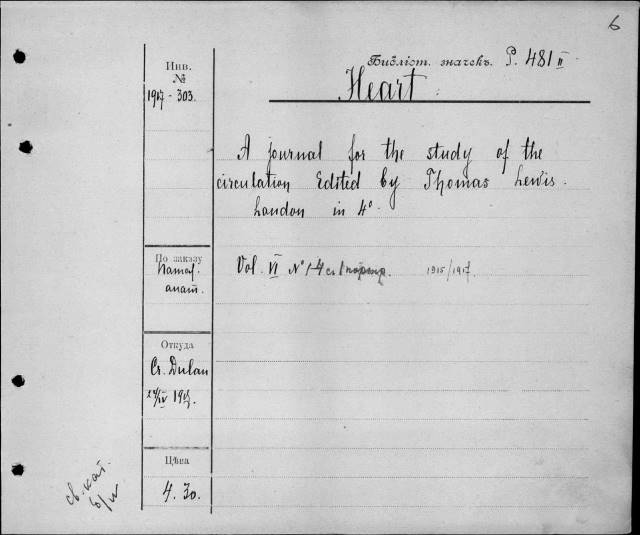 6
Библіот. значекъ. P. 481 II
Heart
Инв.
№
1917 - 303.
A journal for the study of the
circulation Edited by Thomas Lewis.
London in 4°.
По заказу
Патол.
анат.
Vol. VI № 1-4 с 1 портр. 1915/1917.
Откуда
Ст. Dulau
24/IV 1917.
Цѣна
4. 30.
св. кат.